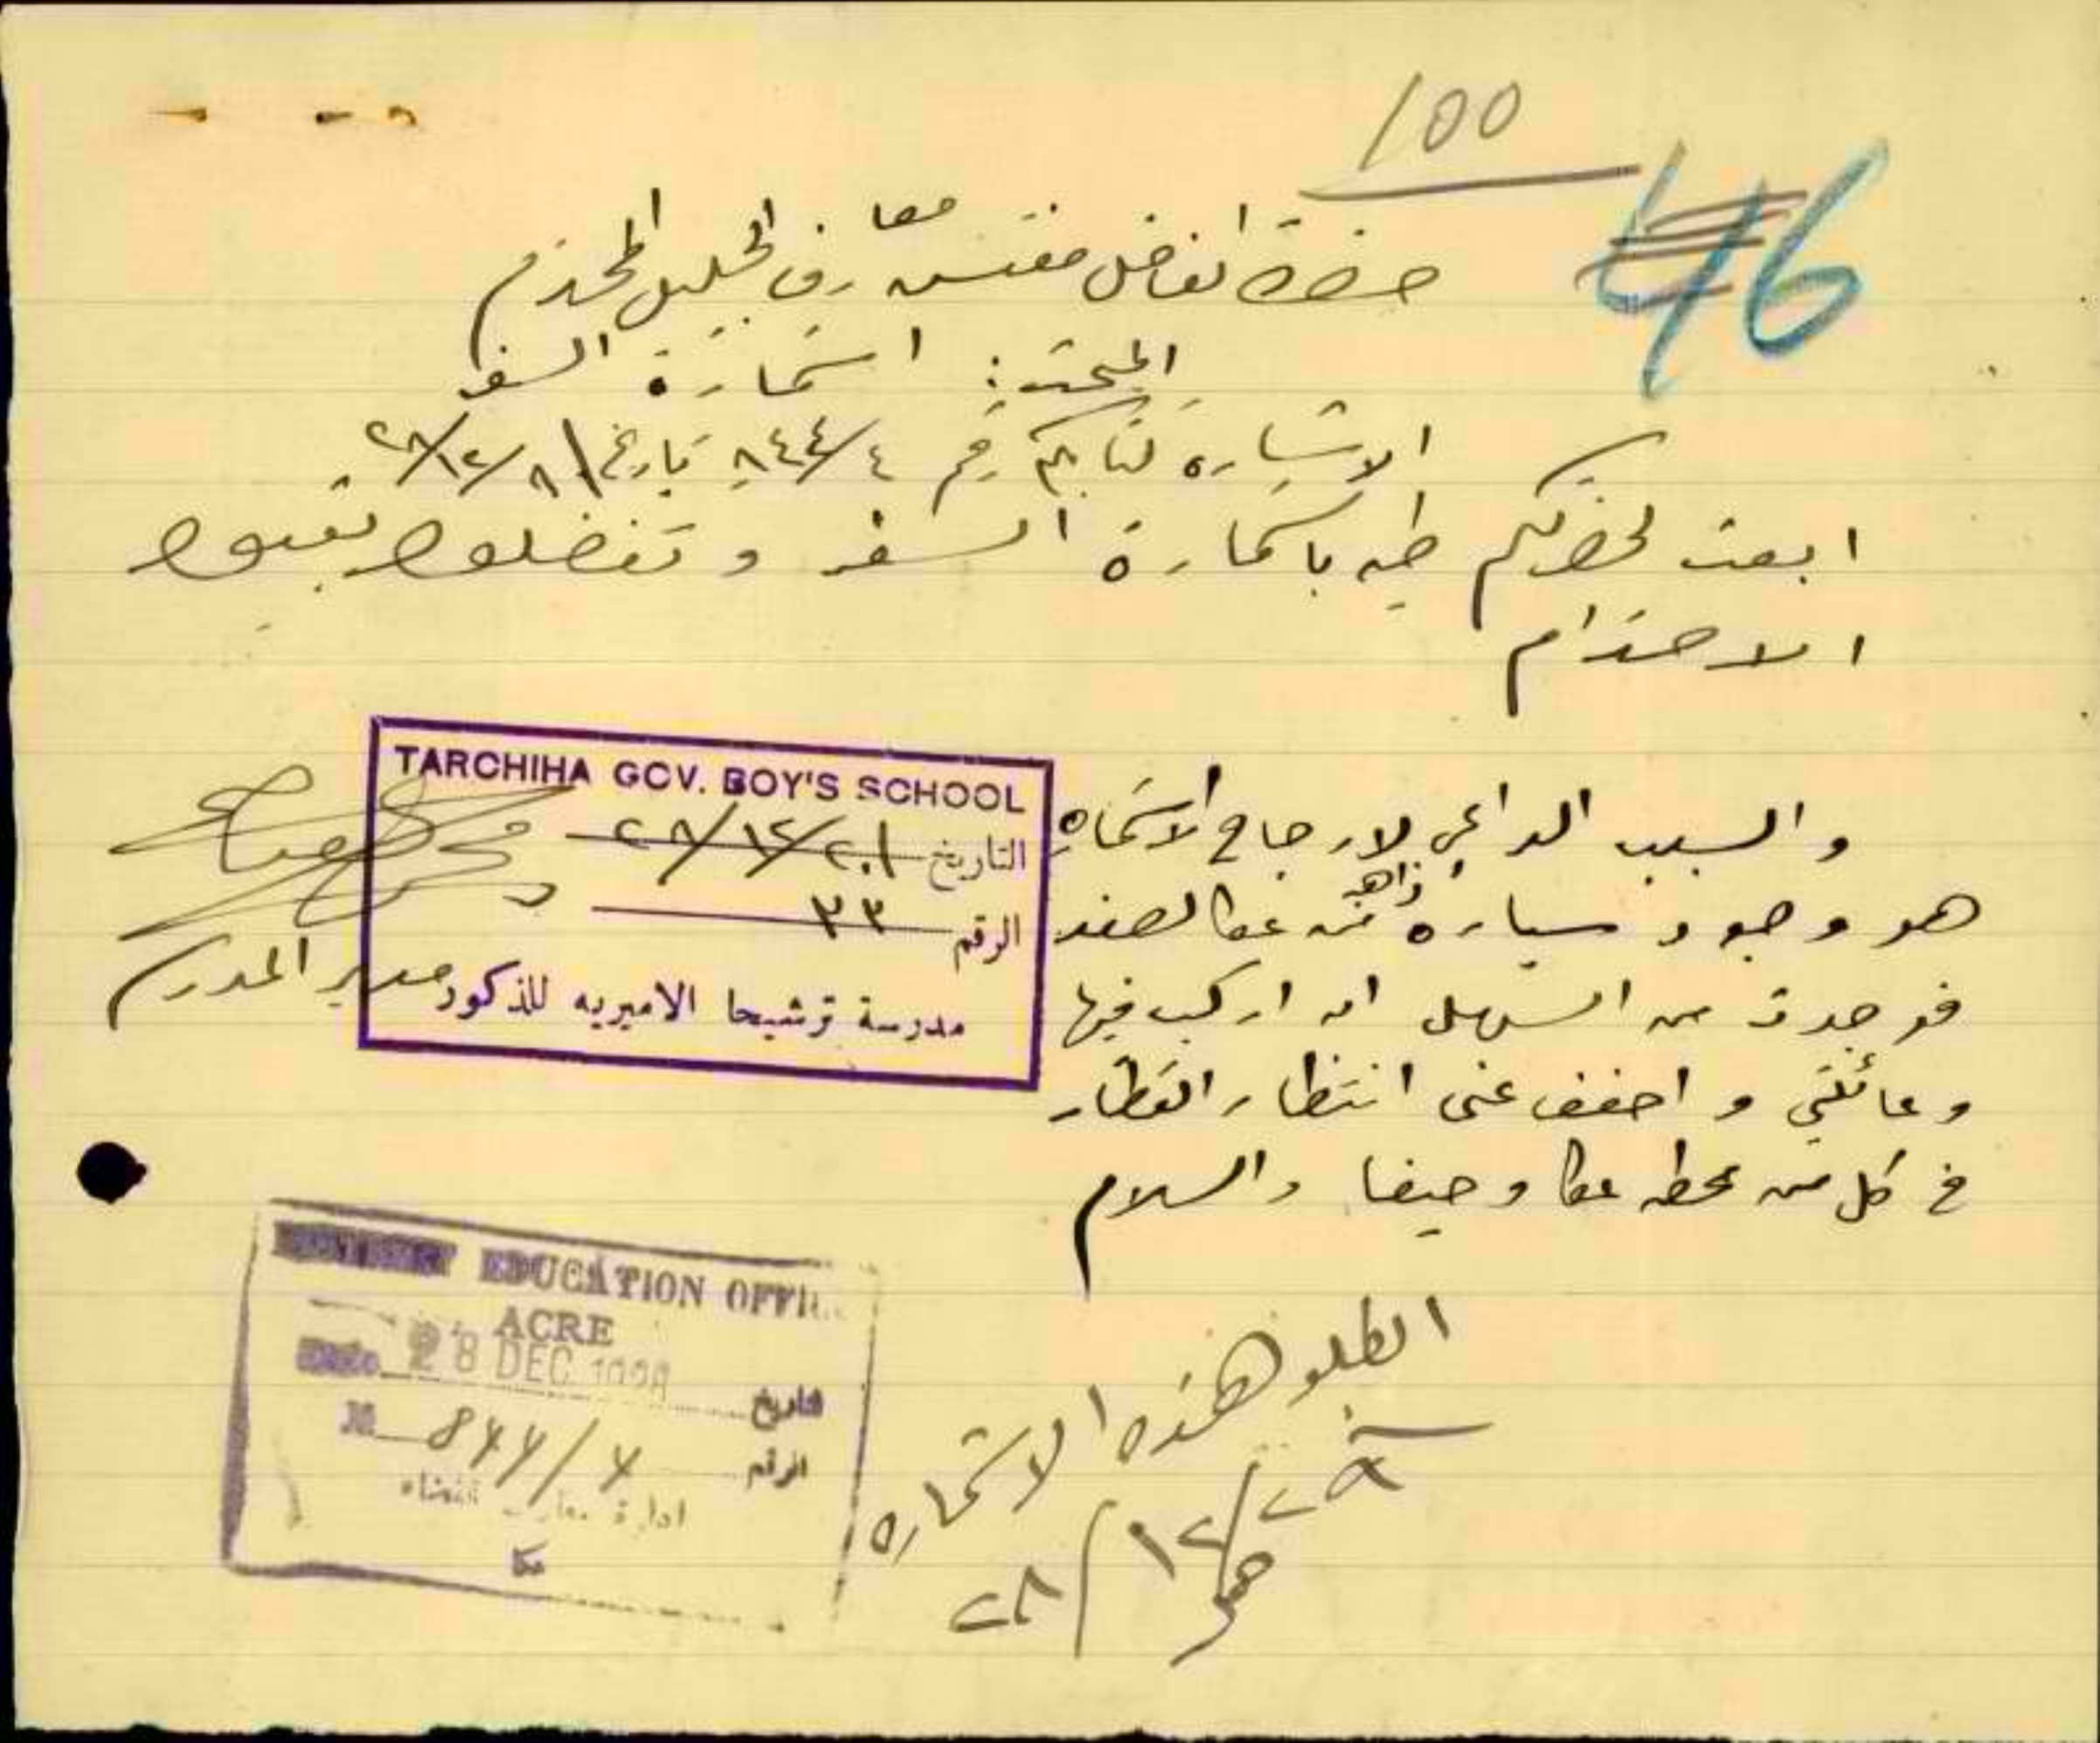 100
46
حضرة الفاضل مفتش معارف الجليل المحترم
المبحث: استمارة السفر
الاشارة كتابكم رقم ٨٤٤/٤ تاريخ ٢٨/١٢/١٨
ابعث لحضرتكم طيه باستمارة السفر وتفضلوا بقبول
الاحترام
TARCHIHA GOV. BOY'S SCHOOL
التاريخ ٢٨/١٢/٢٠
الرقم ٣٣
مدرسة ترشيحا الاميريه للذكور
مدير المدرسة
والسبب الداعي لارجاع الاستماره
هو وجود سياره ذاهبه من عكا لصفد
فوجدت من السهل ان اركب فيها
وعائلتي واخفف عني انتظار القطار
في كل من محطه عكا وحيفا والسلام
DISTRICT EDUCATION OFFICE
ACRE
Date 28 DEC 1928 تاريخ
No 844/4 الرقم
ادارة معارف قضاء
عكا
ابطلوا هذه الاستماره
٢٨/١٢/٢٩